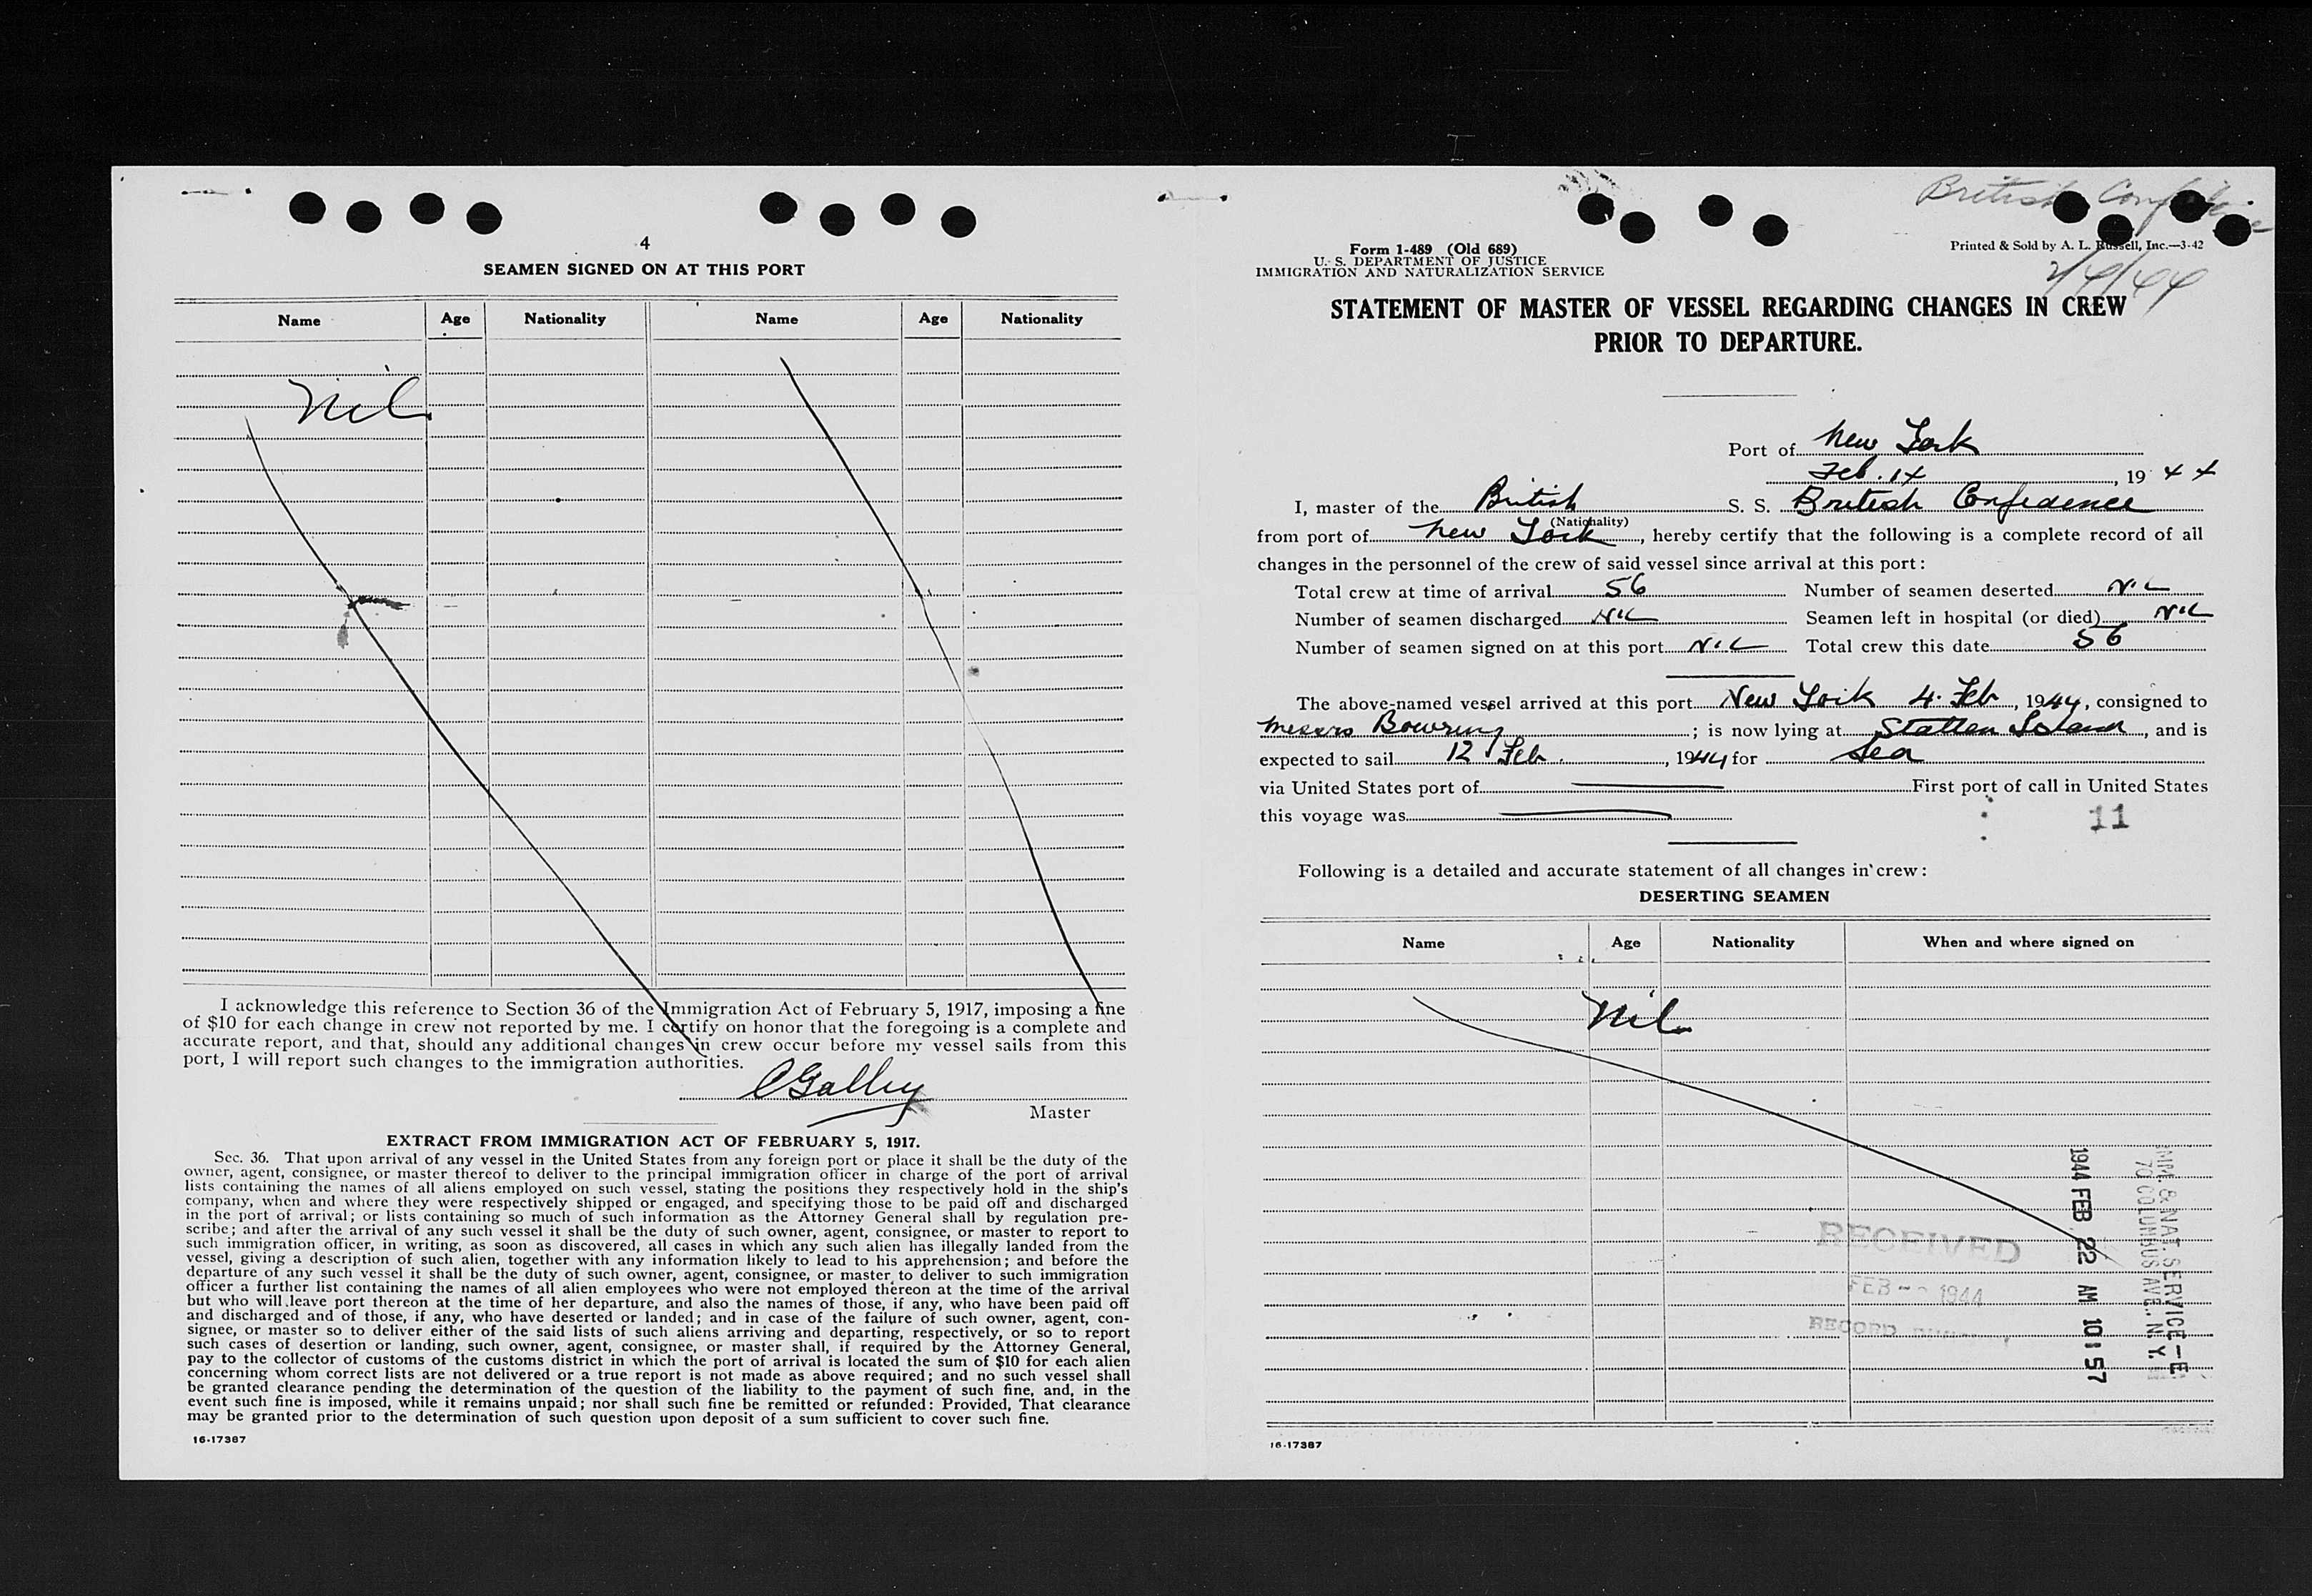 4
SEAMEN SIGNED ON AT THIS PORT
Name Age Nationality Name Age Nationality
Nil
I acknowledge this reference to Section 36 of the Immigration Act of February 5, 1917, imposing a fine
of $10 for each change in crew not reported by me. I certify on honor that the foregoing is a complete and
accurate report, and that, should any additional changes in crew occur before my vessel sails from this
port, I will report such changes to the immigration authorities.
Master
EXTRACT FROM IMMIGRATION ACT OF FEBRUARY 5, 1917.
Sec. 36. That upon arrival of any vessel in the United States from any foreign port or place it shall be the duty of the
owner, agent, consignee, or master thereof to deliver to the principal immigration officer in charge of the port of arrival
lists containing the names of all aliens employed on such vessel, stating the positions they respectively hold in the ship's
company, when and where they were respectively shipped or engaged, and specifying those to be paid off and discharged
in the port of arrival; or lists containing so much of such information as the Attorney General shall by regulation pre-
scribe; and after the arrival of any such vessel it shall be the duty of such owner, agent, consignee, or master to report to
such immigration officer, in writing, as soon as discovered, all cases in which any such alien has illegally landed from the
vessel, giving a description of such alien, together with any information likely to lead to his apprehension; and before the
departure of any such vessel it shall be the duty of such owner, agent, consignee, or master to deliver to such immigration
officer a further list containing the names of all alien employees who were not employed thereon at the time of the arrival
but who will leave port thereon at the time of her departure, and also the names of those, if any, who have been paid off
and discharged and of those, if any, who have deserted or landed; and in case of the failure of such owner, agent, con-
signee, or master so to deliver either of the said lists of such aliens arriving and departing, respectively, or so to report
such cases of desertion or landing, such owner, agent, consignee, or master shall, if required by the Attorney General,
pay to the collector of customs of the customs district in which the port of arrival is located the sum of $10 for each alien
concerning whom correct lists are not delivered or a true report is not made as above required; and no such vessel shall
be granted clearance pending the determination of the question of the liability to the payment of such fine, and, in the
event such fine is imposed, while it remains unpaid; nor shall such fine be remitted or refunded: Provided, That clearance
may be granted prior to the determination of such question upon deposit of a sum sufficient to cover such fine.
16-17387
British Confidence
Form 1-489 (Old 689)
U. S. DEPARTMENT OF JUSTICE
IMMIGRATION AND NATURALIZATION SERVICE
Printed & Sold by A. L. Russell, Inc.—3-42
2/4/44
STATEMENT OF MASTER OF VESSEL REGARDING CHANGES IN CREW
PRIOR TO DEPARTURE.
Port of New York
Feb. 14, 1944
I, master of the British S. S. British Confidence
(Nationality)
from port of New York, hereby certify that the following is a complete record of all
changes in the personnel of the crew of said vessel since arrival at this port:
Total crew at time of arrival 56 Number of seamen deserted NIL
Number of seamen discharged NIL Seamen left in hospital (or died) NIL
Number of seamen signed on at this port NIL Total crew this date 56
The above-named vessel arrived at this port New York 4. Feb, 1944, consigned to
Messrs Bowring; is now lying at Statten Island, and is
expected to sail 12 Feb., 1944 for Sea
via United States port of First port of call in United States
this voyage was
11
Following is a detailed and accurate statement of all changes in crew:
DESERTING SEAMEN
Name Age Nationality When and where signed on
Nil
RECEIVED
FEB 1944
RECORD
1944 FEB 22 AM 10 57
IMM. & NAT. SERVICE-E
70 COLUMBUS AVE., N.Y.
16-17387